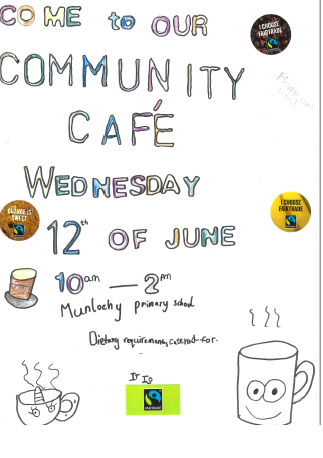 COME to OUR
I CHOOSE
FAIRTRADE
COMMUNITY
CAFÉ
WEDNESDAY
CHANGE IS
SWEET
I CHOOSE
FAIRTRADE
12th OF JUNE
10am — 2pm
Munlochy primary school
Dietary requirements catered for.
It Is
FAIRTRADE